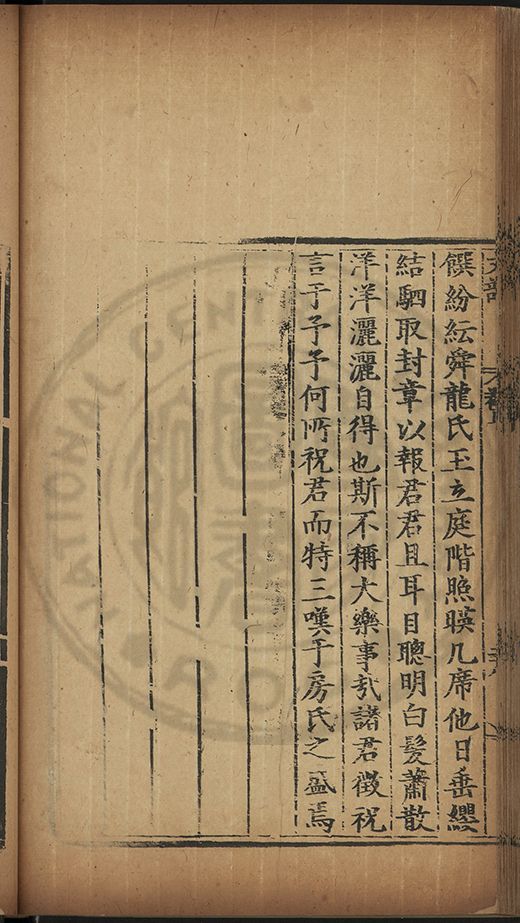 饌紛紜舜龍氏王立庭階照暎几席他日垂纓
結駟取封章以報君君且耳目聰明白髮蕭散
洋洋灑灑自得也斯不稱大樂事哉諸君徵祝
言于予予何所祝君而特三嘆于房氏之盛焉